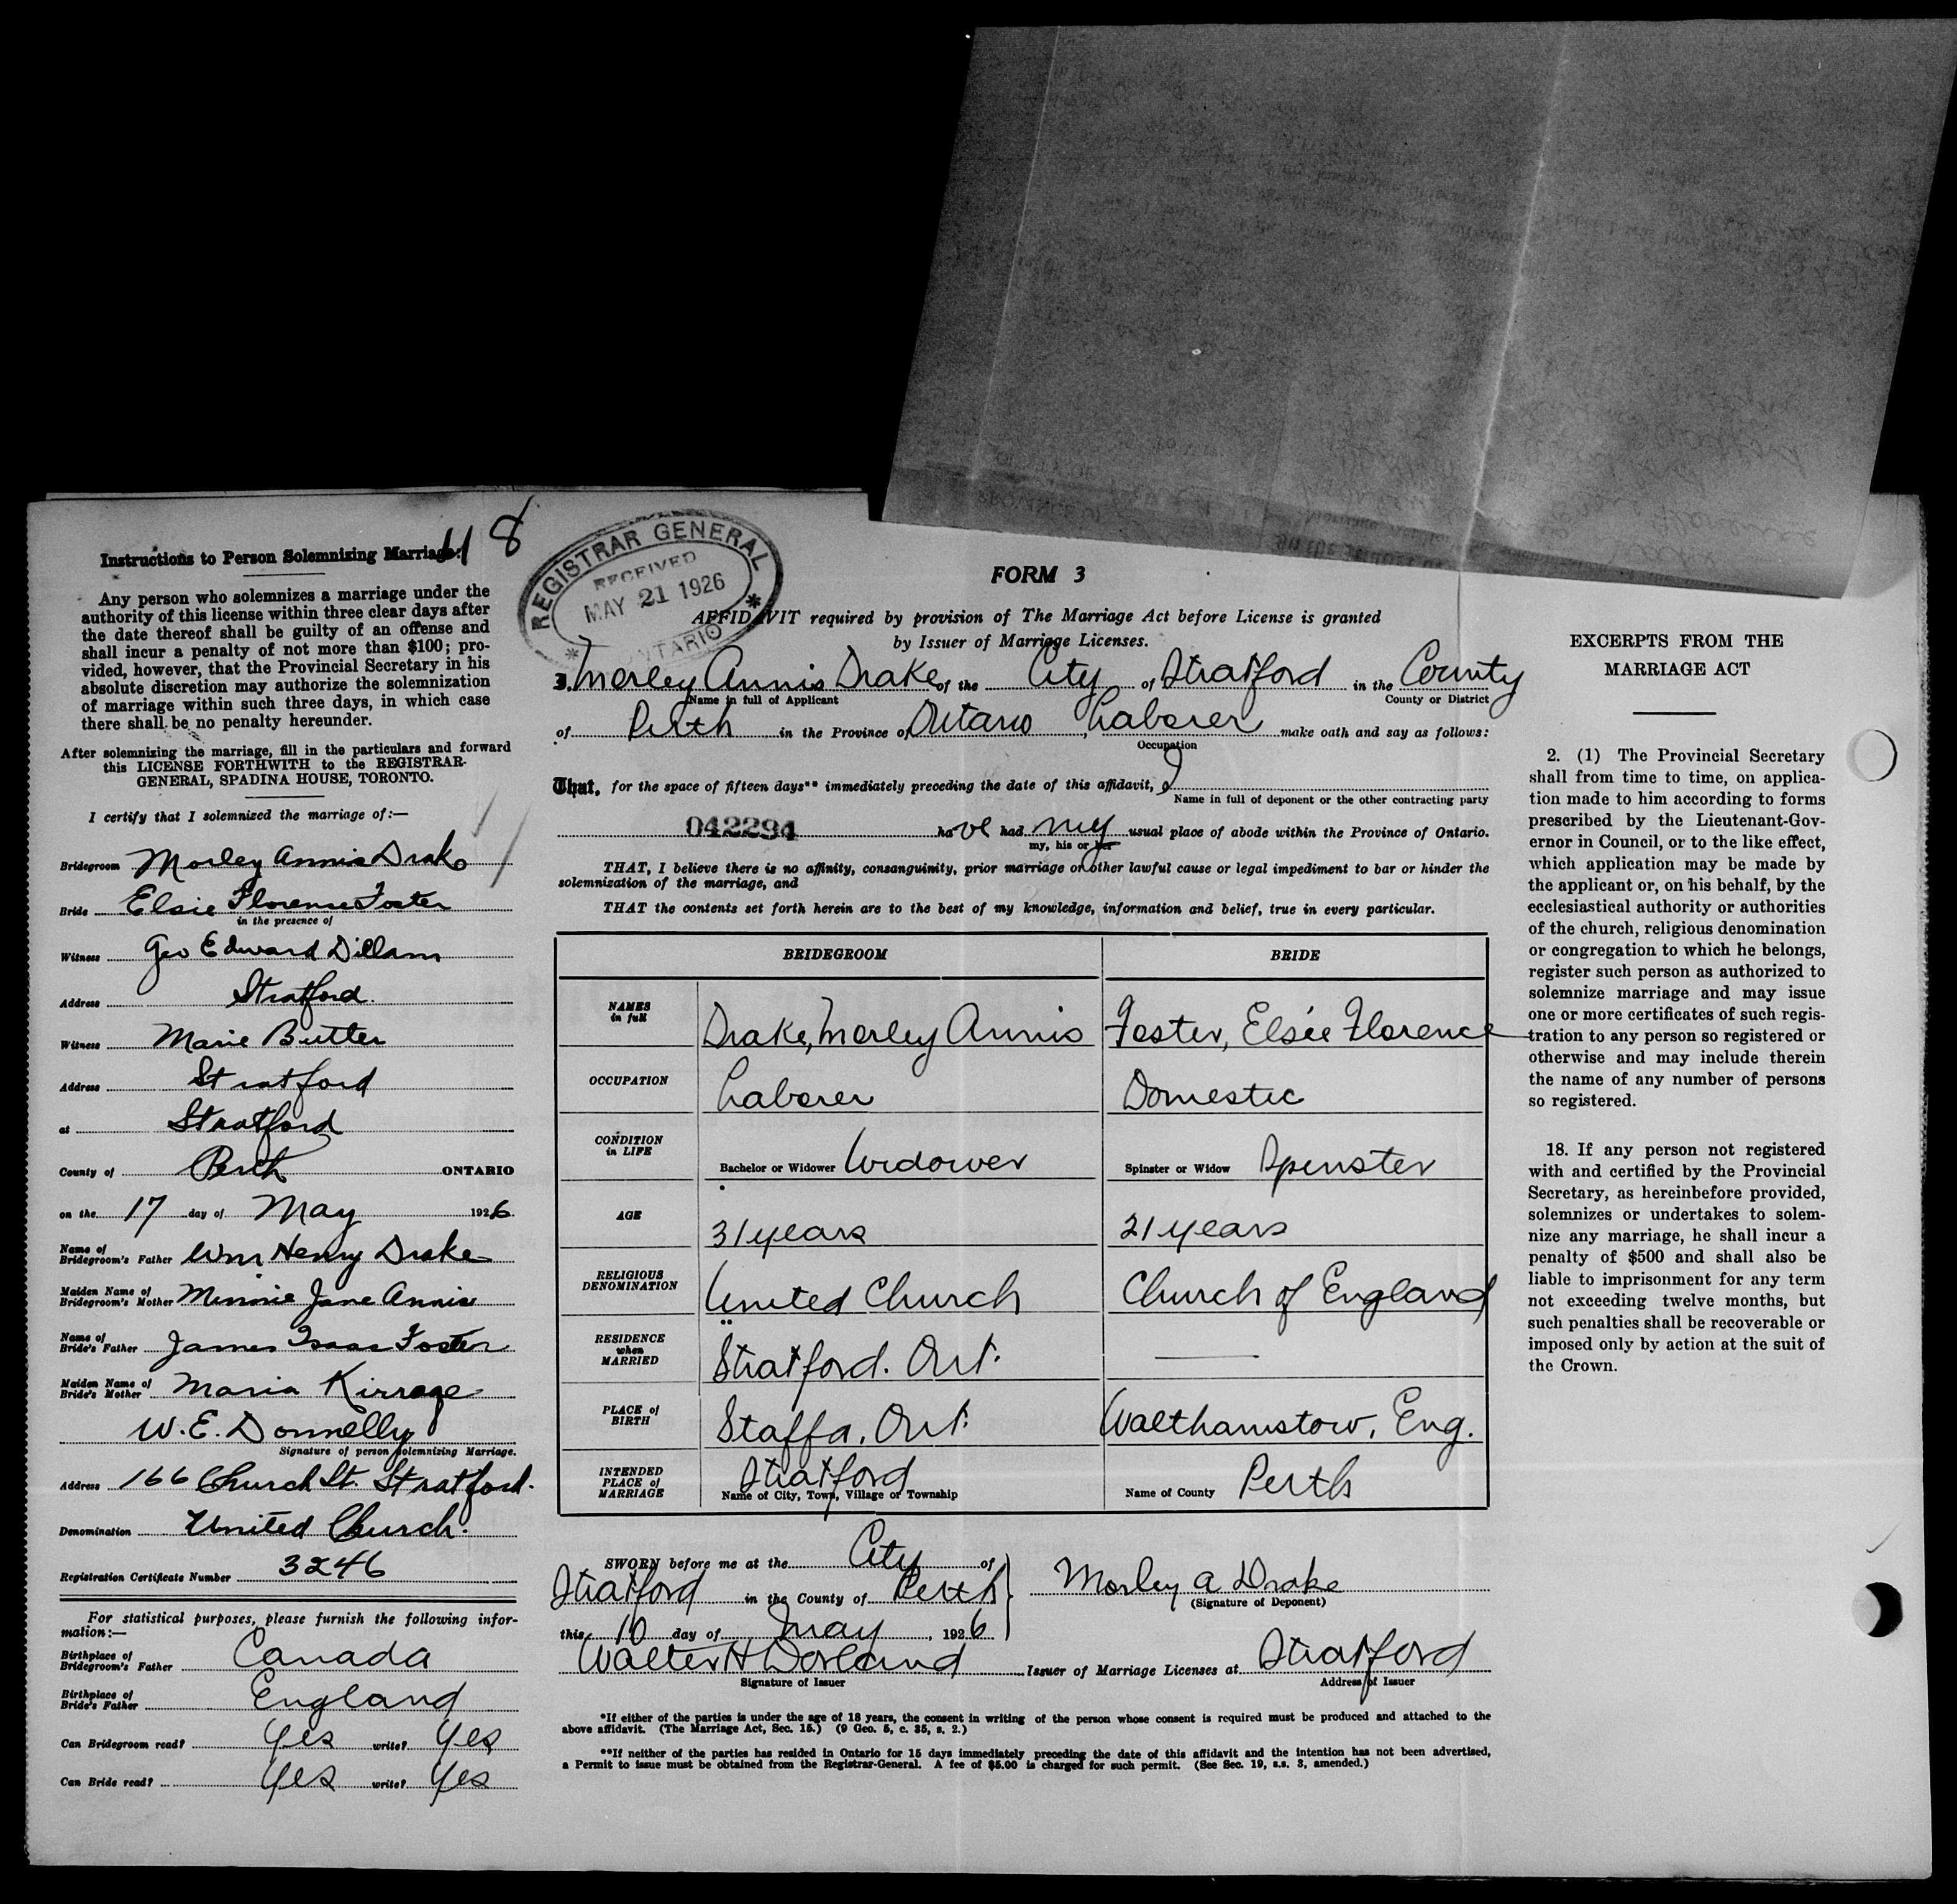 118
Instructions to Person Solemnizing Marriage:
Any person who solemnizes a marriage under the
authority of this license within three clear days after
the date thereof shall be guilty of an offense and
shall incur a penalty of not more than $100; pro-
vided, however, that the Provincial Secretary in his
absolute discretion may authorize the solemnization
of marriage within such three days, in which case
there shall be no penalty hereunder.
After solemnizing the marriage, fill in the particulars and forward
this LICENSE FORTHWITH to the REGISTRAR-
GENERAL, SPADINA HOUSE, TORONTO.
I certify that I solemnized the marriage of:—
Bridegroom Morley Annis Drake
Bride Elsie Florence Foster
in the presence of
Witness Geo Edward Dillam
Address Stratford.
Witness Marie Butler
Address Stratford
at Stratford
County of Perth ONTARIO
on the 17 day of May 1926.
Name of
Bridegroom's Father Wm Henry Drake
Maiden Name of
Bridegroom's Mother Minnie Jane Annis
Name of
Bride's Father James Isaac Foster
Maiden Name of
Bride's Mother Maria Kirrage
W. E. Donnelly
Signature of person solemnizing Marriage.
Address 166 Church St. Stratford.
Denomination United Church.
Registration Certificate Number 3246
For statistical purposes, please furnish the following infor-
mation:—
Birthplace of
Bridegroom's Father Canada
Birthplace of
Bride's Father England
Can Bridegroom read? Yes write? Yes
Can Bride read? Yes write? Yes
REGISTRAR GENERAL
RECEIVED
MAY 21 1926
ONTARIO
FORM 3
AFFIDAVIT required by provision of The Marriage Act before License is granted
by Issuer of Marriage Licenses.
I, Morley Annis Drake of the City of Stratford in the County
Name in full of Applicant County or District
of Perth in the Province of Ontario, Laborer make oath and say as follows:
Occupation
That, for the space of fifteen days** immediately preceding the date of this affidavit, I
Name in full of deponent or the other contracting party
042294 have had my usual place of abode within the Province of Ontario.
my, his or her
THAT, I believe there is no affinity, consanguinity, prior marriage or other lawful cause or legal impediment to bar or hinder the
solemnization of the marriage, and
THAT the contents set forth herein are to the best of my knowledge, information and belief, true in every particular.
BRIDEGROOM BRIDE
NAMES
in full Drake, Morley Annis Foster, Elsie Florence
OCCUPATION Laborer Domestic
CONDITION
in LIFE Bachelor or Widower Widower Spinster or Widow Spinster
AGE 31 years 21 years
RELIGIOUS
DENOMINATION United Church Church of England
RESIDENCE
when
MARRIED Stratford. Ont. —
PLACE of
BIRTH Staffa, Ont. Walthamstow, Eng.
INTENDED
PLACE of
MARRIAGE Stratford Name of County Perth
Name of City, Town, Village or Township
SWORN before me at the City of
Stratford in the County of Perth
this 10 day of May, 1926
Morley A Drake
(Signature of Deponent)
Walter H Dorland Issuer of Marriage Licenses at Stratford
Signature of Issuer Address of Issuer
*If either of the parties is under the age of 18 years, the consent in writing of the person whose consent is required must be produced and attached to the
above affidavit. (The Marriage Act, Sec. 15.) (9 Geo. 5, c. 35, s. 2.)
**If neither of the parties has resided in Ontario for 15 days immediately preceding the date of this affidavit and the intention has not been advertised,
a Permit to issue must be obtained from the Registrar-General. A fee of $5.00 is charged for such permit. (See Sec. 19, s.s. 3, amended.)
EXCERPTS FROM THE
MARRIAGE ACT
2. (1) The Provincial Secretary
shall from time to time, on applica-
tion made to him according to forms
prescribed by the Lieutenant-Gov-
ernor in Council, or to the like effect,
which application may be made by
the applicant or, on his behalf, by the
ecclesiastical authority or authorities
of the church, religious denomination
or congregation to which he belongs,
register such person as authorized to
solemnize marriage and may issue
one or more certificates of such regis-
tration to any person so registered or
otherwise and may include therein
the name of any number of persons
so registered.
18. If any person not registered
with and certified by the Provincial
Secretary, as hereinbefore provided,
solemnizes or undertakes to solem-
nize any marriage, he shall incur a
penalty of $500 and shall also be
liable to imprisonment for any term
not exceeding twelve months, but
such penalties shall be recoverable or
imposed only by action at the suit of
the Crown.